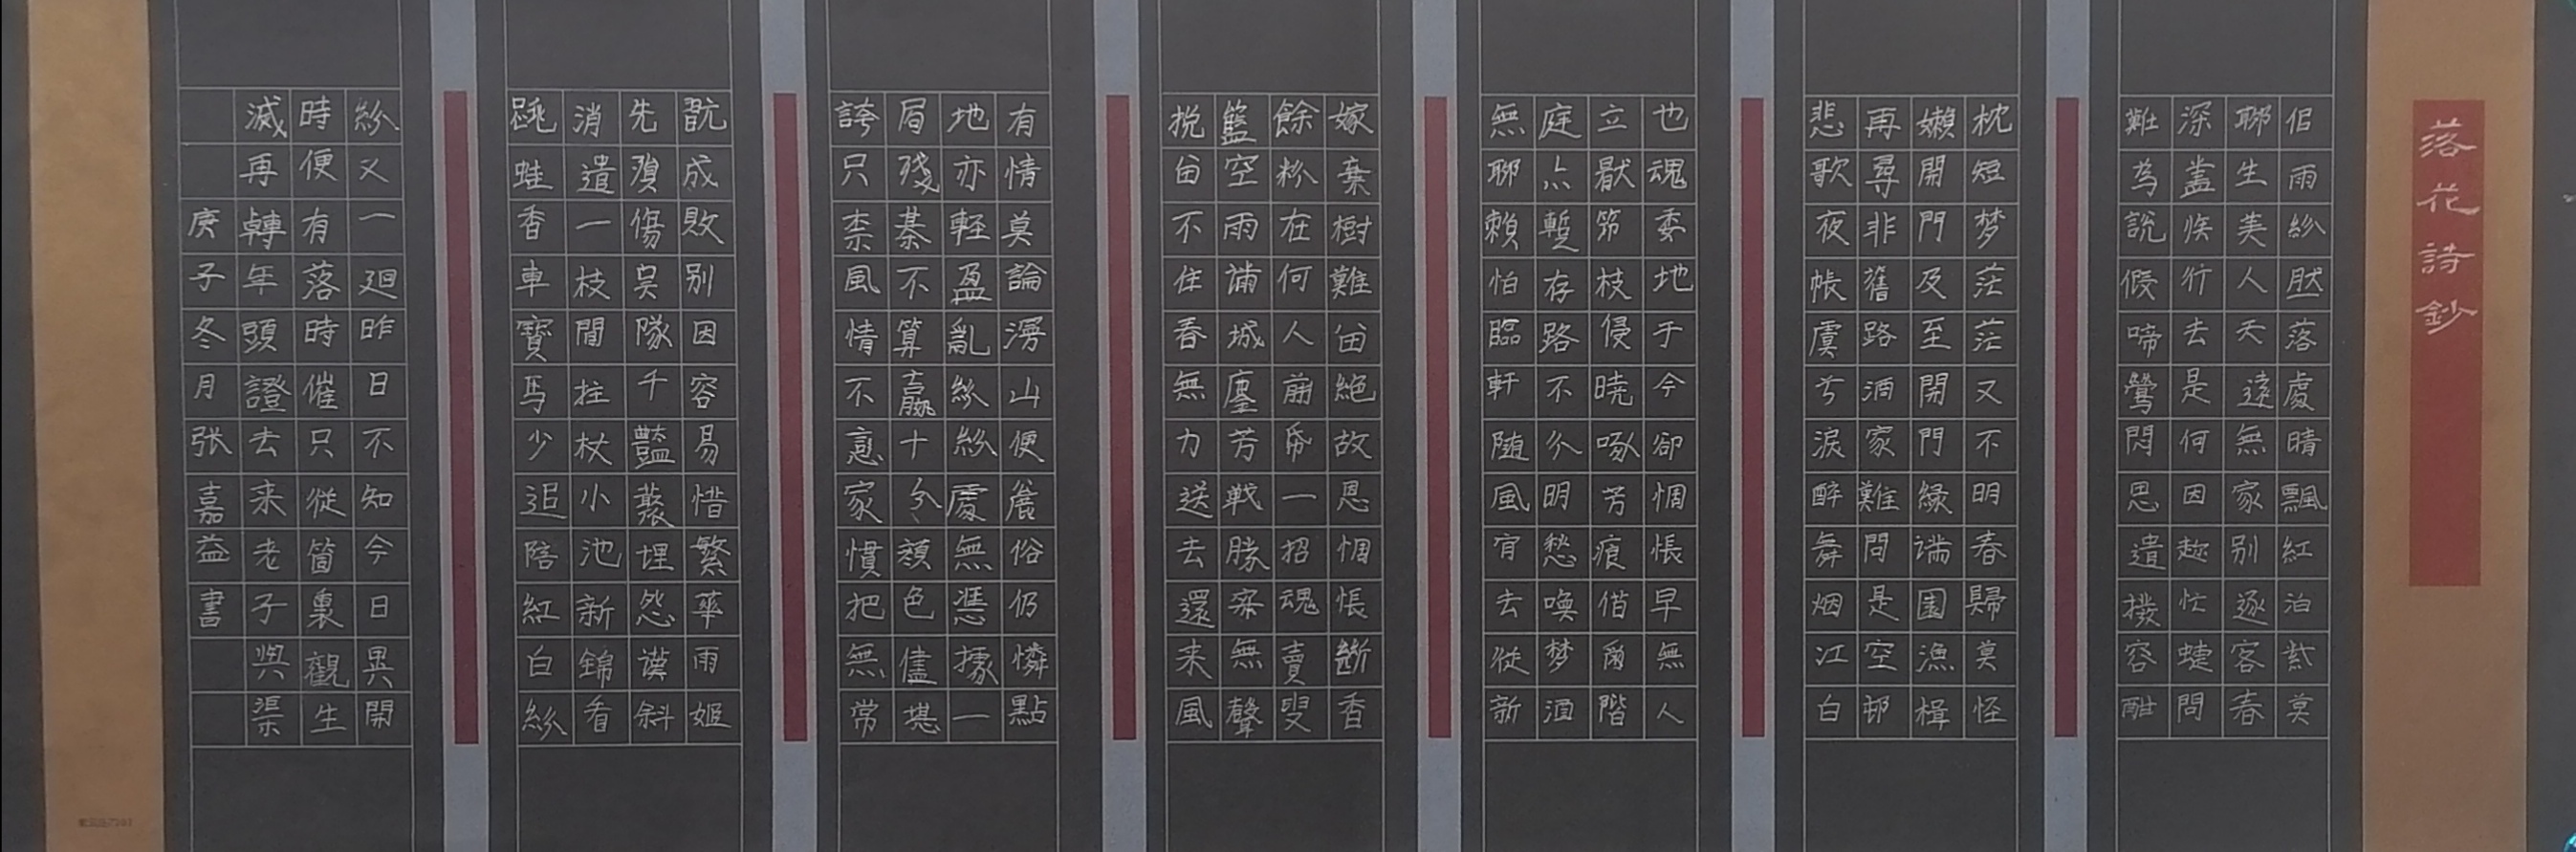 落花詩鈔
佀雨紛然落處晴飄紅泊紫莫
聊生美人天遠無家別逐客春
深盡族行去是何因趂忙蜨問
難為説假啼鶯悶思遣撥容酣
枕短梦茫茫又不明春歸莫怪
嬾開門及至開門緑滿園漁楫
再尋非舊路酒家難問是空邨
悲歌夜帳虞兮淚醉舞烟江白
也魂委地于今卻惆悵早無人
立厭笻枝侵曉啄芳痕借爾階
庭点蹔存路不分明愁唤梦酒
無聊賴怕臨軒随風肎去從新
嫁棄樹難畱絶故恩惆悵斷香
餘粉在何人剪帋一招魂賣叟
籃空雨滿城塵芳戦勝寂無聲
挽畱不住春無力送去還来風
有情莫論溷山便簷俗仍憐點
地亦輕盈亂紛紛處無憑據一
局殘棊不算嬴十分顔色儘堪
誇只柰風情不惪家慣把無常
翫成敗別因容易惜繁華雨姬
先殞傷吳隊千豔叢埋怨漢斜
消遣一枝閒拄杖小池新錦看
跳蛙香車寶馬少追陪紅白紛
紛又一廻昨日不知今日異開
時便有落時催只從箇裏觀生
滅再轉年頭證去来老子與渠
庚子冬月张嘉益書